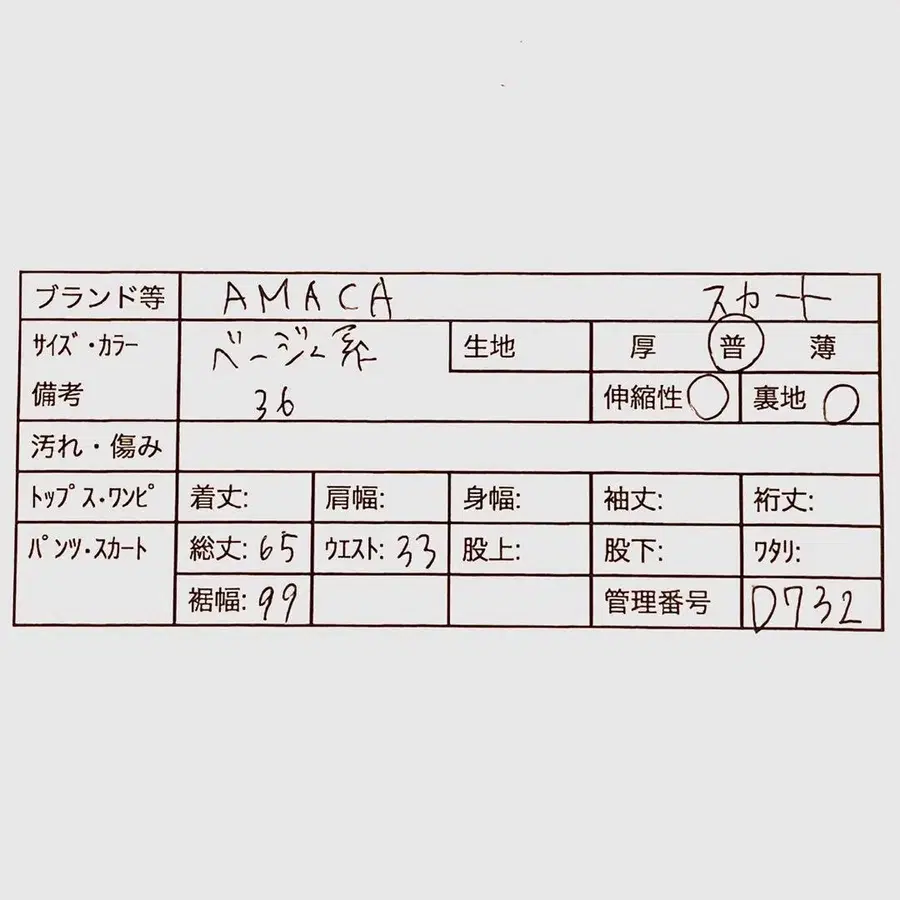 ブランド等 AMACA スカート
サイズ・カラー ベージュ系 生地 厚 普 薄
備考 36 伸縮性 ○ 裏地 ○
汚れ・傷み
トップス・ワンピ 着丈: 肩幅: 身幅: 袖丈: 裄丈:
パンツ・スカート 総丈: 65 ウエスト: 33 股上: 股下: ワタリ:
裾幅: 99 管理番号 D732